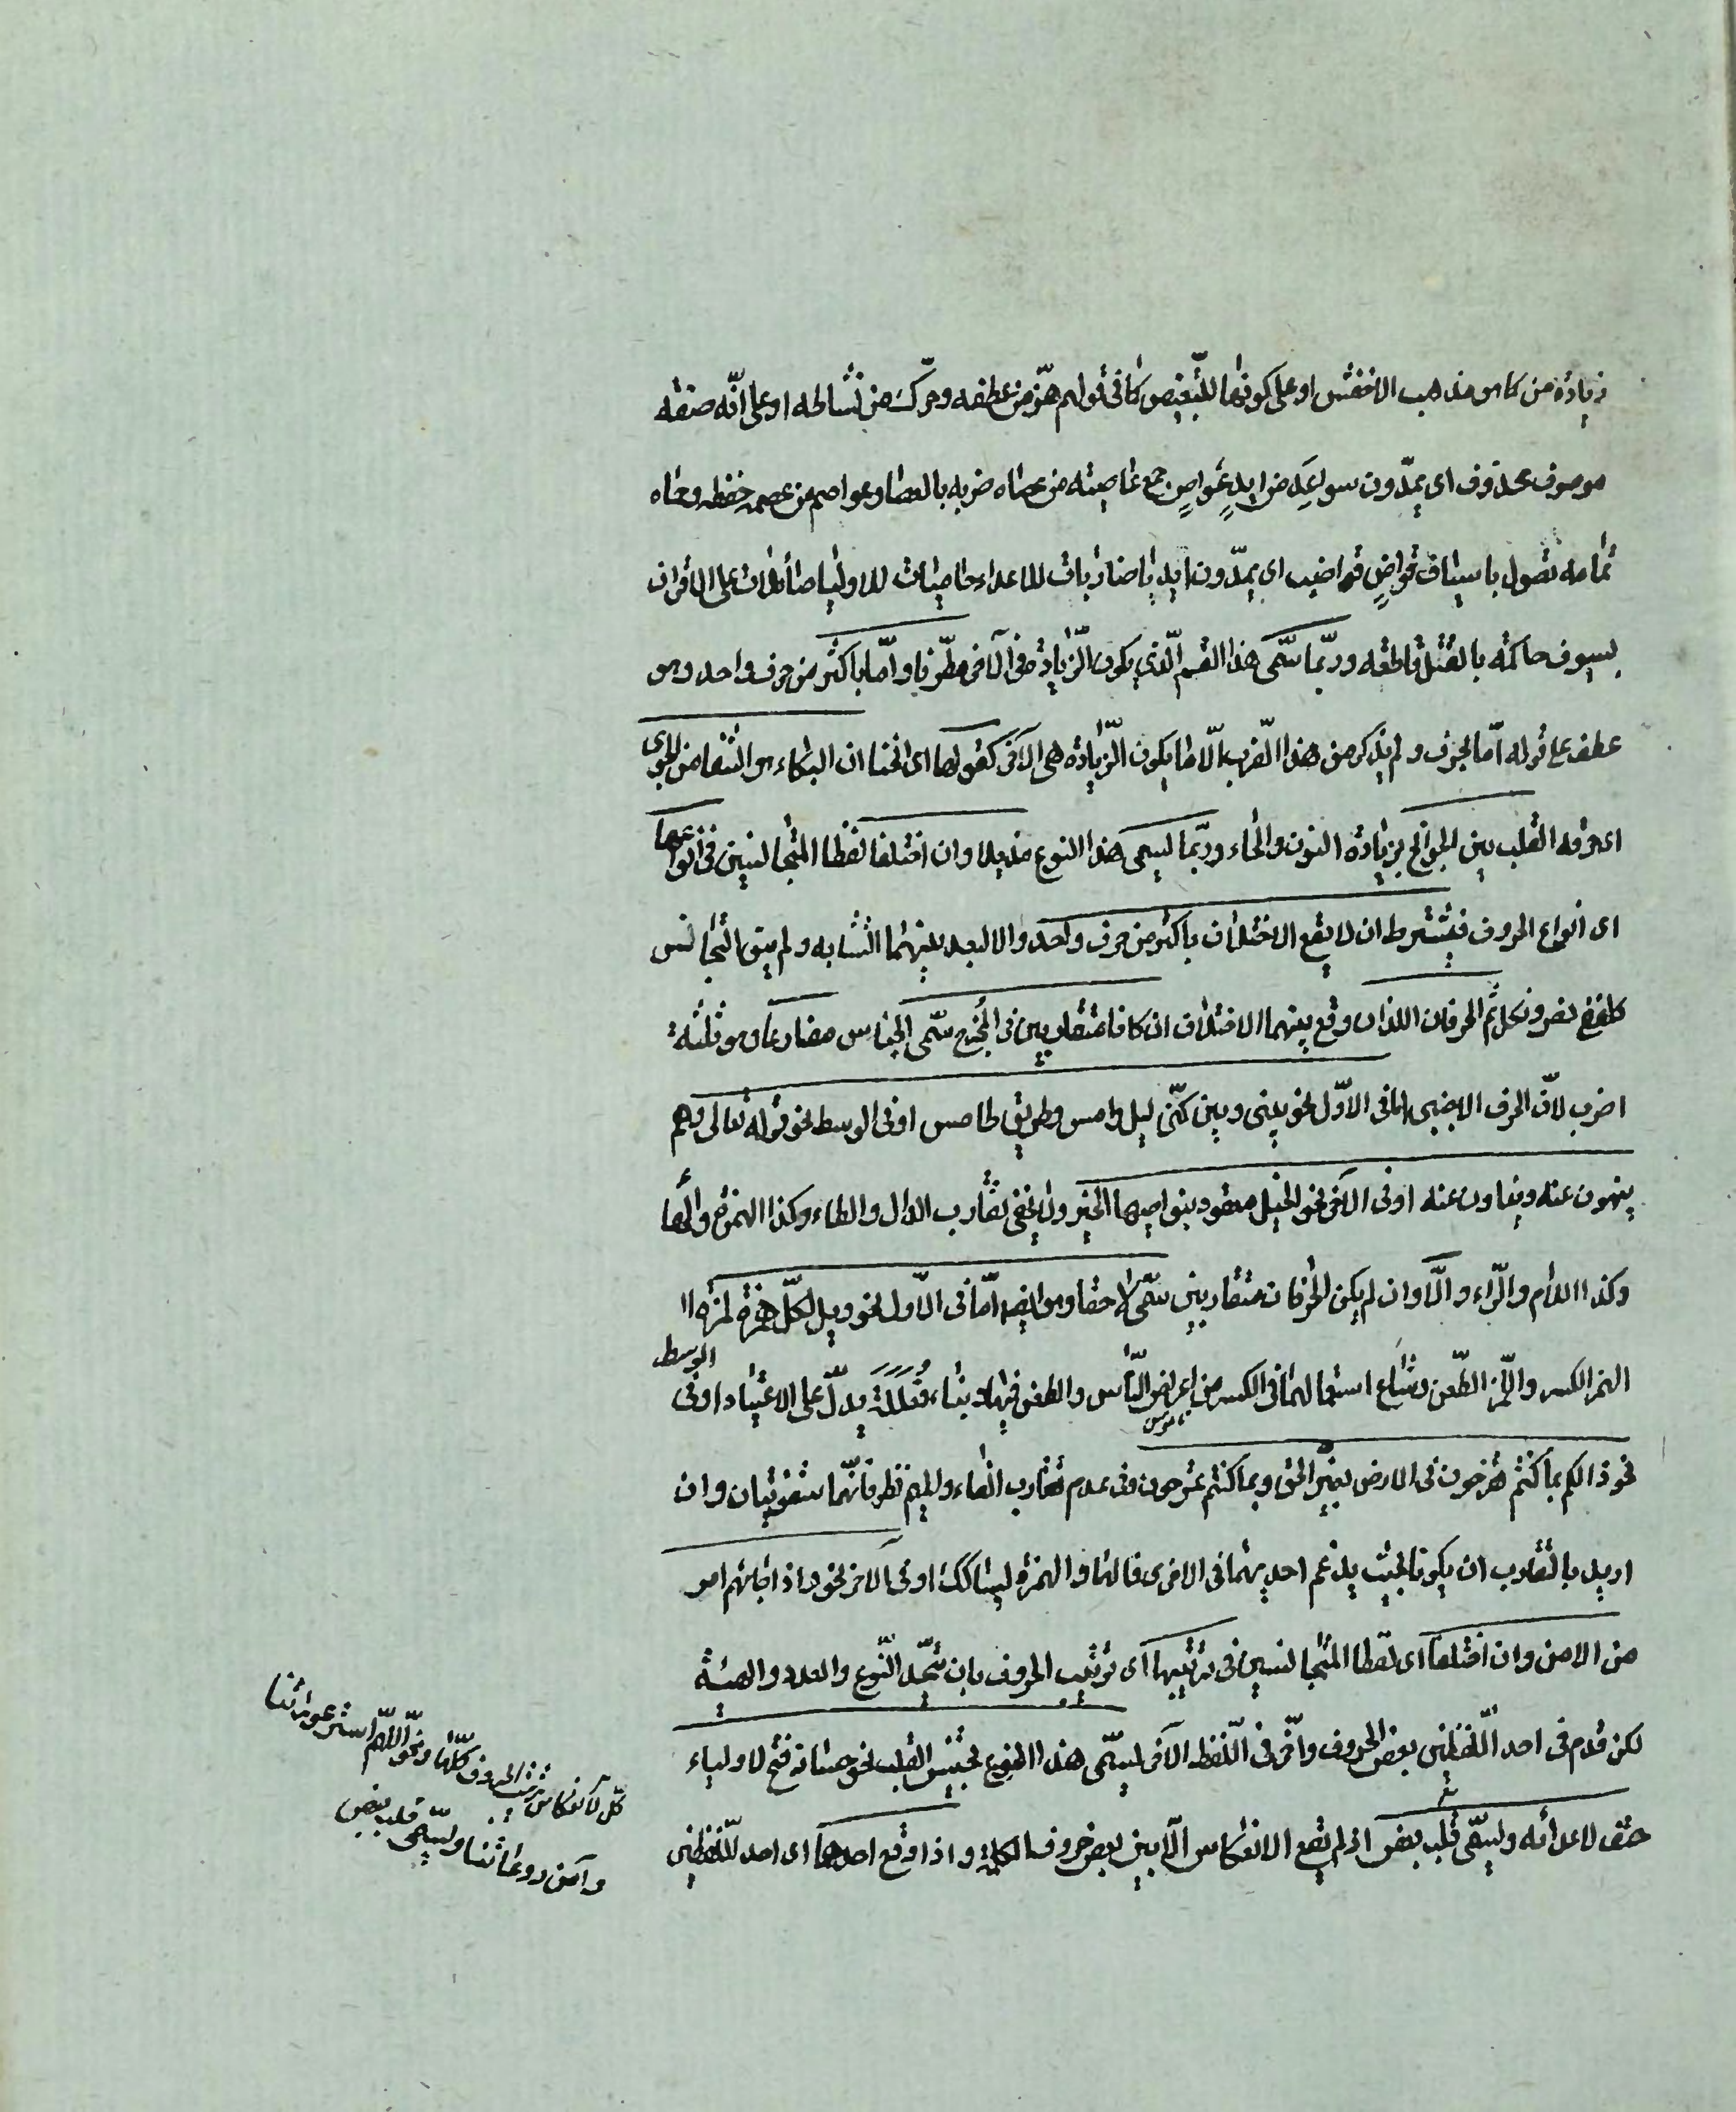 زيادة من كما هو مذهب الاخفش او على كونها للتبعيض كما في قولهم هز من عطفه وحرك من نشاطه او على انه صفة
موصوف محذوف اى يمدون سواعد من ايد عواص جمع عاصية من عصاه ضربه بالعصا وعواصم من عصمه حفظه وحماه
تمامه تصول باسياف قواض قواضب اى يمدون ايديا ضاربات للاعداء حاميات للاوليا صائلات على الاقران
بسيوف حاكمة بالقتل قاطعة وربما سمى هذا القسم الذي يكون الزيادة فى الآخر مطرفا واما باكثر من حرف واحد وهو
عطف على قوله اما بحرف ولم يذكر من هذا الضرب الا ما يكون الزيادة فى الآخر كقولها اى الخنسا ان البكاء هو الشفا من الجوى
اى حرقة القلب بين الجوانح بزيادة النون والحاء وربما يسمى هذا النوع مذيلا وان اختلفا لفظا المتجانسين فى انواعها
اى انواع الحروف فيشترط ان لا يقع الاختلاف باكثر من حرف واحد والا لبعد بينهما التشابه ولم يبق التجانس
كلفظى نصر ونكل ثم الحرفان اللذان وقع بينهما الاختلاف ان كانا متقاربين فى المخرج سمى الجناس مضارعا وهو ثلثة
اضرب لان الحرف الاجنبى اما فى الاول نحو بينى وبين كنى ليل دامس وطريق طامس او فى الوسط نحو قوله تعالى وهم
ينهون عنه وينأون عنه او فى الآخر نحو الخيل معقود بنواصيها الخير ولا يخفى تقارب الدال والطاء وكذا الهمزة والها
وكذا اللام والراء والا وان لم يكن الحرفان متقاربين سمى لاحقا وهو ايضا اما فى الاول نحو ويل لكل همزة لمزة
الهمز الكسر واللمز الطعن وشاع استعمالهما فى الكسر من اعراض الناس والطعن فيها وبناء فعلة يدل على الاعتياد او فى الوسط
نحو ذالكم بما كنتم تفرحون فى الارض بغير الحق وبما كنتم تمرحون وفى عدم تقارب الفاء والميم نظر فانهما شفويتان وان
اريد بالتقارب ان يكونا بحيث يدغم احديهما فى الاخرى فالها والهمزة ليستا كك او فى الآخر نحو واذا جائهم امر
من الامن وان اختلفا اى لفظا المتجانسين فى ترتيبها اى ترتيب الحروف بان يتحد النوع والعدد والهيئة
لكن قدم فى احد اللفظين بعض الحروف واخر فى اللفظ الآخر يسمى هذا النوع تجنيس القلب نحو حسامه فتح لاوليائه
حتف لاعدائه ويسمى قلب بعض اذ لم يقع الانعكاس الا بين بعض حروف الكلمة واذا وقع احدهما اى احد اللفظين
كل لانعكاس ترتيب الحروف كلها ونحو اللهم استر عوراتنا
وآمن روعاتنا ويسمى قلب بعض